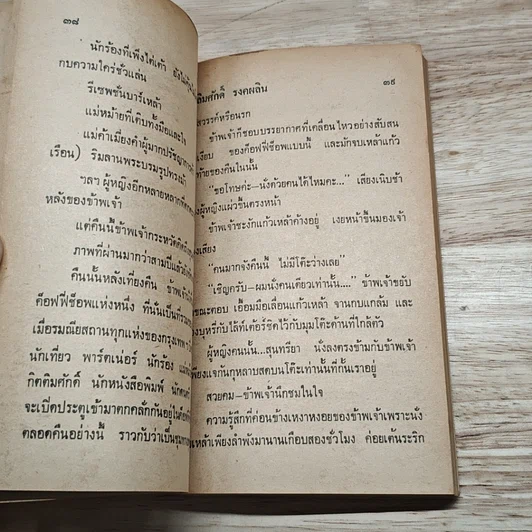 ๓๘
นักร้องที่เพิ่งไต่เต้า
กบความใคร่ชั่วแล่น
รีเซพชั่นบาร์เหล้า
แม่หม้ายที่ดิบทั้งมือและใจ
แม่ค้าเมี่ยงคำผู้มากปรัชญา
เรือน) ริมลานพระบรมรูปทรงม้า
ฯลฯ ผู้หญิงอีกหลายหลาก
หลังของข้าพเจ้า
แต่คืนนี้ข้าพเจ้ากระหวัด
ภาพที่ผ่านมากว่าสามปี
คืนนั้นหลังเที่ยงคืน
ค็อฟฟี่ช็อพแห่งหนึ่ง ที่นั่นเป็น
เมื่อรมณียสถานทุกแห่งของกรุงเทพ
นักเที่ยว พาร์ตเน่อร์ นักร้อง
กิตติมศักดิ์ นักหนังสือพิมพ์
จะเปิดประตูเข้ามาตกคลั่กกันอยู่ใน
ตลอดคืนอย่างนี้ ราวกับว่าเป็น
รงคผลิน ๓๙
สวรรค์หรือนรก
ข้าพเจ้าก็ชอบบรรยากาศที่เคลื่อนไหวอย่างสับสน
ของค็อฟฟี่ช็อพแบบนี้ และมักจบเหล้าแก้ว
ของคืนในนั้น
“ขอโทษค่ะ—นั่งด้วยคนได้ไหมคะ...” เสียงเนิบช้า
ผู้หญิงแผ่วขึ้นตรงหน้า
ข้าพเจ้าชะงักแก้วเหล้าค้างอยู่ เงยหน้าขึ้นมองเจ้า
เสียง
“คนมากจังคืนนี้ ไม่มีโต๊ะว่างเลย”
“เชิญครับ—ผมนั่งคนเดียวเท่านั้น....” ข้าพเจ้าขยับ
เอื้อมมือเลื่อนแก้วเหล้า จานกบแกล้ม และ
บุหรี่กับไล้ท์เต้อร์ชิดไว้มุมโต๊ะด้านที่ใกล้ตัว
ผู้หญิงคนนั้น...สุนทรียา นั่งลงตรงข้ามกับข้าพเจ้า
เพียงแจกันกุหลาบสดบนโต๊ะเท่านั้นที่กั้นเราอยู่
สวยคม—ข้าพเจ้านึกชมในใจ
ความรู้สึกที่ค่อนข้างเหงาหงอยของข้าพเจ้าเพราะนั่ง
เหล้าเพียงลำพังมานานเกือบสองชั่วโมง ค่อยเต้นระริก